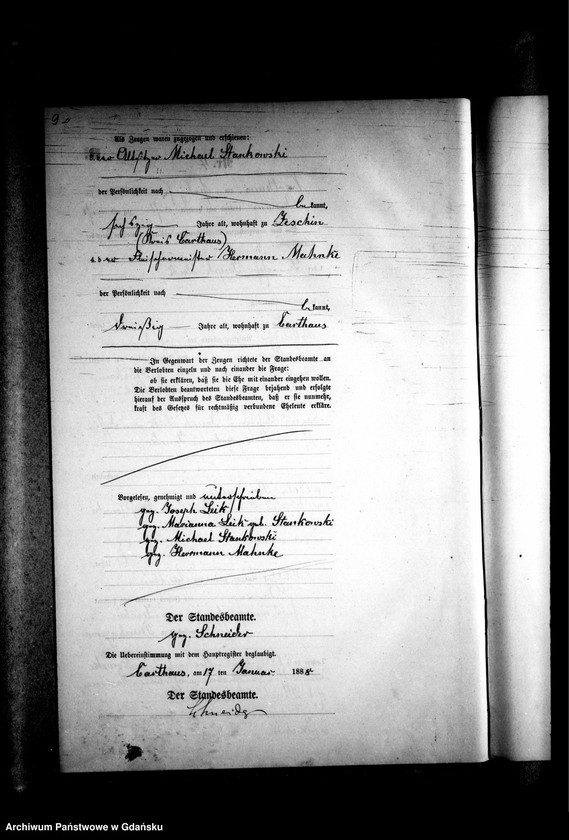 Als Zeugen waren zugezogen und erschienen:
3. der Altsitzer Michael Stankowski
der Persönlichkeit nach
be kannt,
sechszig Jahre alt, wohnhaft zu Zeschin
(Kreis Carthaus)
4. der Fleischermeister Hermann Mahnke
der Persönlichkeit nach
be kannt,
dreißig Jahre alt, wohnhaft zu Carthaus
In Gegenwart der Zeugen richtete der Standesbeamte an
die Verlobten einzeln und nach einander die Frage:
ob sie erklären, daß sie die Ehe mit einander eingehen wollen.
Die Verlobten beantworteten diese Frage bejahend und erfolgte
hierauf der Ausspruch des Standesbeamten, daß er sie nunmehr,
kraft des Gesetzes für rechtmäßig verbundene Eheleute erkläre.
Vorgelesen, genehmigt und unterschrieben
gez. Joseph Leik
gez. Marianna Leik geb. Stankowski
gez. Michael Stankowski
gez. Herrmann Mahnke
Der Standesbeamte.
gez. Schneider
Die Uebereinstimmung mit dem Hauptregister beglaubigt.
Carthaus, am 17 ten Januar 188
Der Standesbeamte.
Schneider
Archiwum Państwowe w Gdańsku